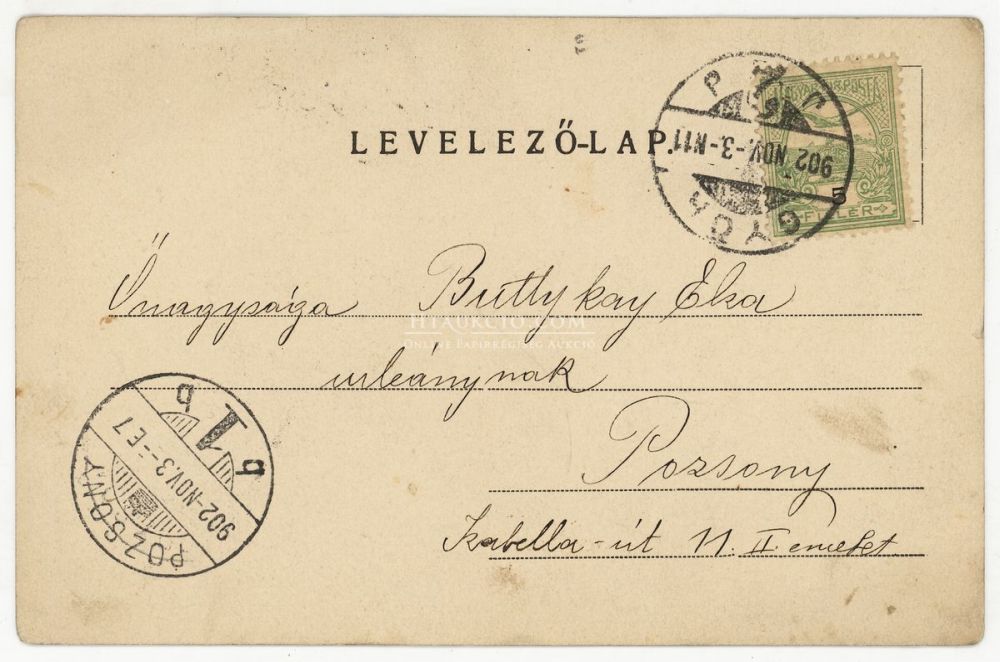 LEVELEZŐ-LAP.
902 NOV.-3.-N11
GYOR
MAGYAR KIR. POSTA
5
FILLER
Őnagysága Buttykay Elza
HTAUKCIO.COM
ONLINE PAPÍRRÉGISÉG AUKCIÓ
urleánynak
Pozsony
Izabella-út 11. II emelet
POZSONY
902-NOV.3--E7
1
b b